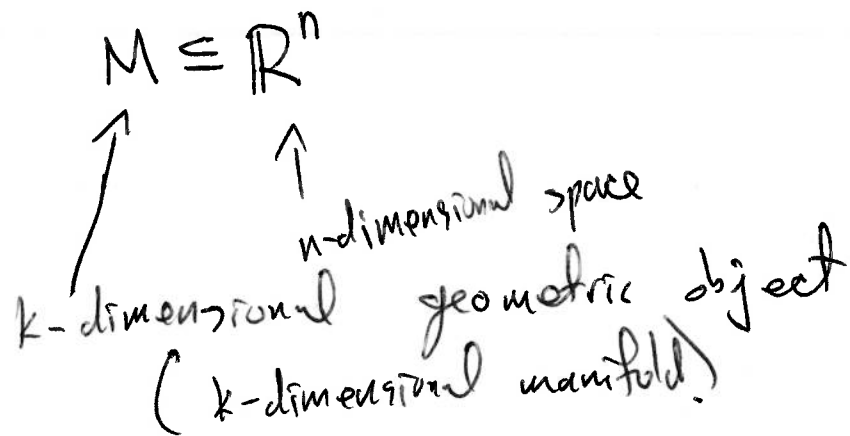 M ⊆ ℝⁿ
n-dimensional space
k-dimensional geometric object
(k-dimensional manifold)